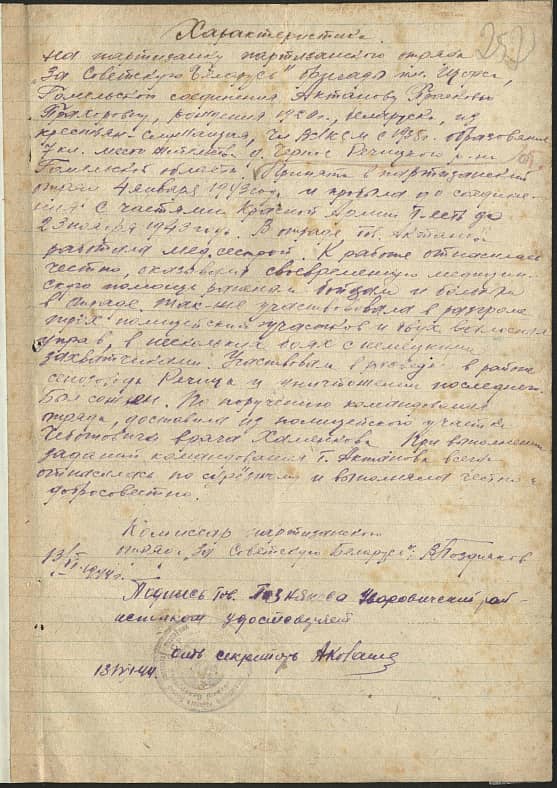 Характеристика
252
на партизанку партизанского отряда
"За Советскую Беларусь" бригады им.
Гомельского соединения Актанову
1920 г. рождения, беларуска, из
крестьян член ВЛКСМ с 1938 г. образование
7 кл. место жительства д. Речицкого р-на
Гомельской области. Принята в партизанский
отряд 4 января 1943 года и пробыла до соедине-
ния с частями Красной Армии т-есть до
23 ноября 1943 года. В отряде тов. Актанова
работала медсестрой. К работе относилась
честно, оказывала своевременную медицин-
скую помощь раненым бойцам и больным
в отряде. Так-же участвовала в разгроме
трёх полицейских участков и двух волостных
управ, в нескольких боях с немецкими
захватчиками. Участвовала в в районе
Речица и уничтожении последнего.
По поручению командования
отряда, доставила из полицейского участка
врача При выполнении
заданий командования т. Актанова всегда
относилась по серьёзному и выполняла честно и
добросовестно.
Комиссар партизанского
отряда "За Советскую Беларусь" В Поздняков
13/VI 1944 г.
Подпись тов. Позднякова Уваровичский рай-
исполком удостоверяет
секретарь
13/VI-44.